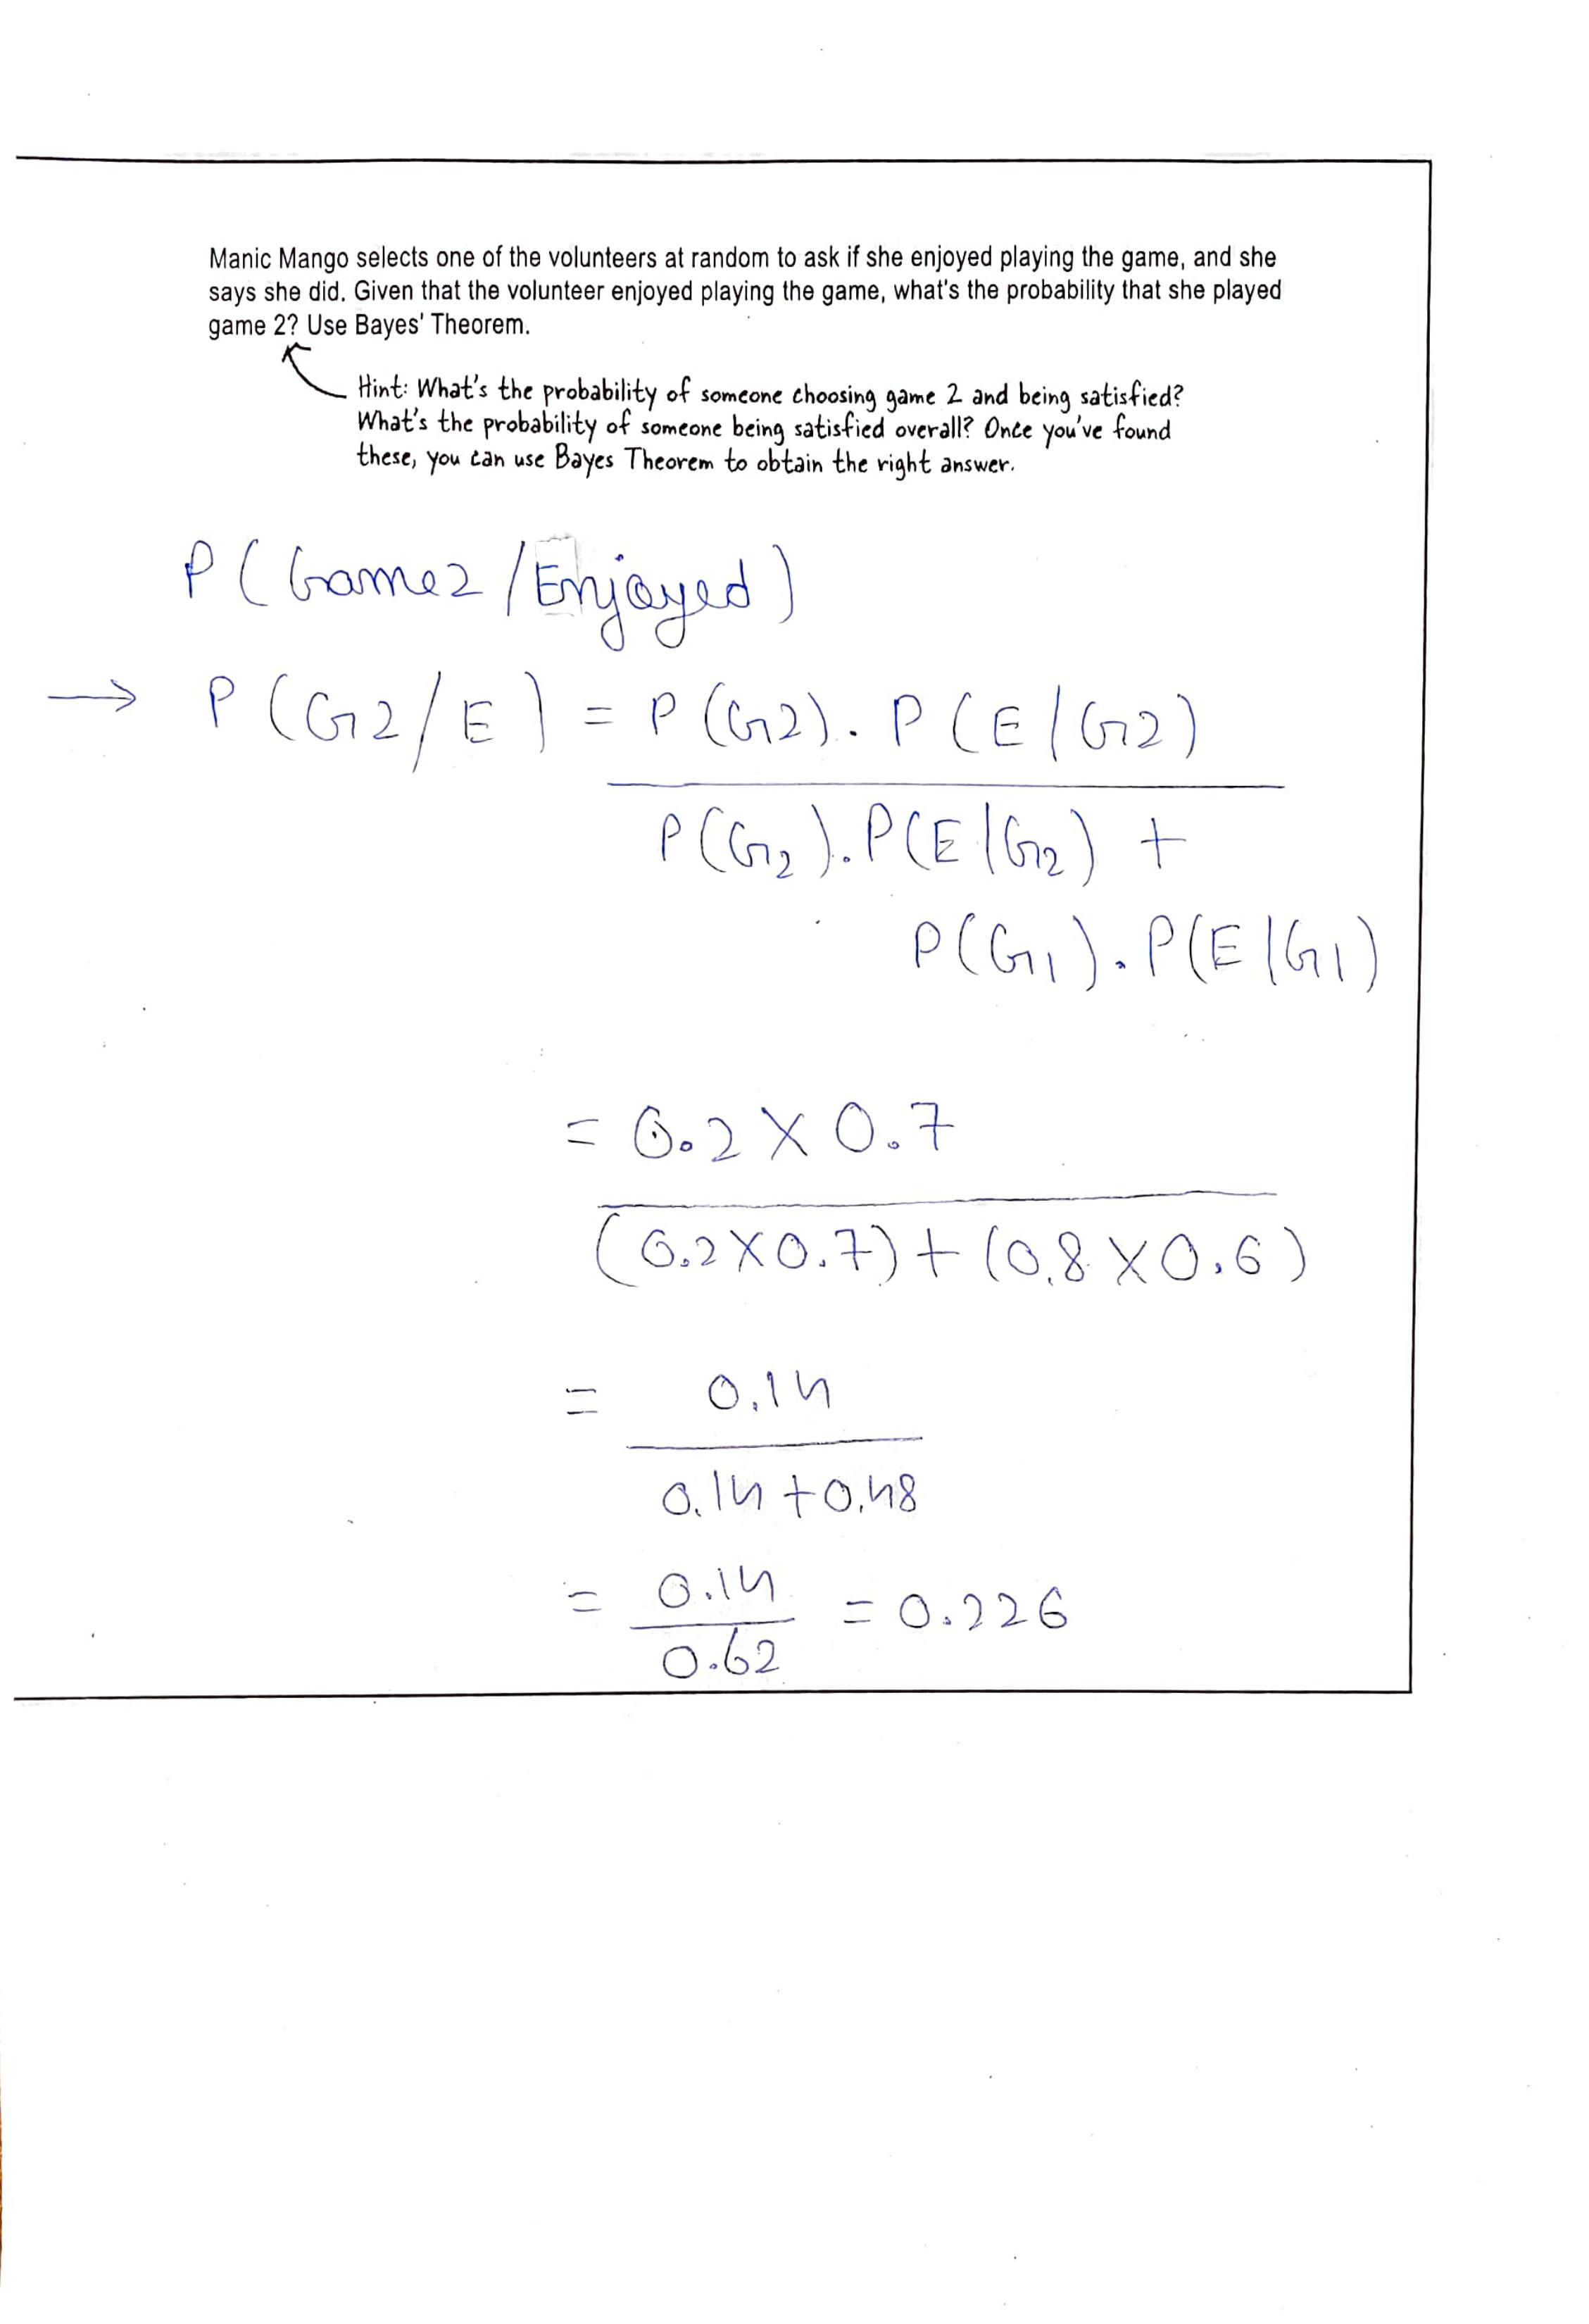 Manic Mango selects one of the volunteers at random to ask if she enjoyed playing the game, and she
says she did. Given that the volunteer enjoyed playing the game, what's the probability that she played
game 2? Use Bayes' Theorem.
Hint: What's the probability of someone choosing game 2 and being satisfied?
What's the probability of someone being satisfied overall? Once you've found
these, you can use Bayes Theorem to obtain the right answer.
P(Game2/Enjoyed)
→ P(G2/E) = P(G2). P(E/G2)
P(G2).P(E|G2) +
P(G1).P(E|G1)
= 0.2 X 0.7
(0.2X0.7)+(0.8X0.6)
= 0.14
0.14+0.48
= 0.14 = 0.226
0.62